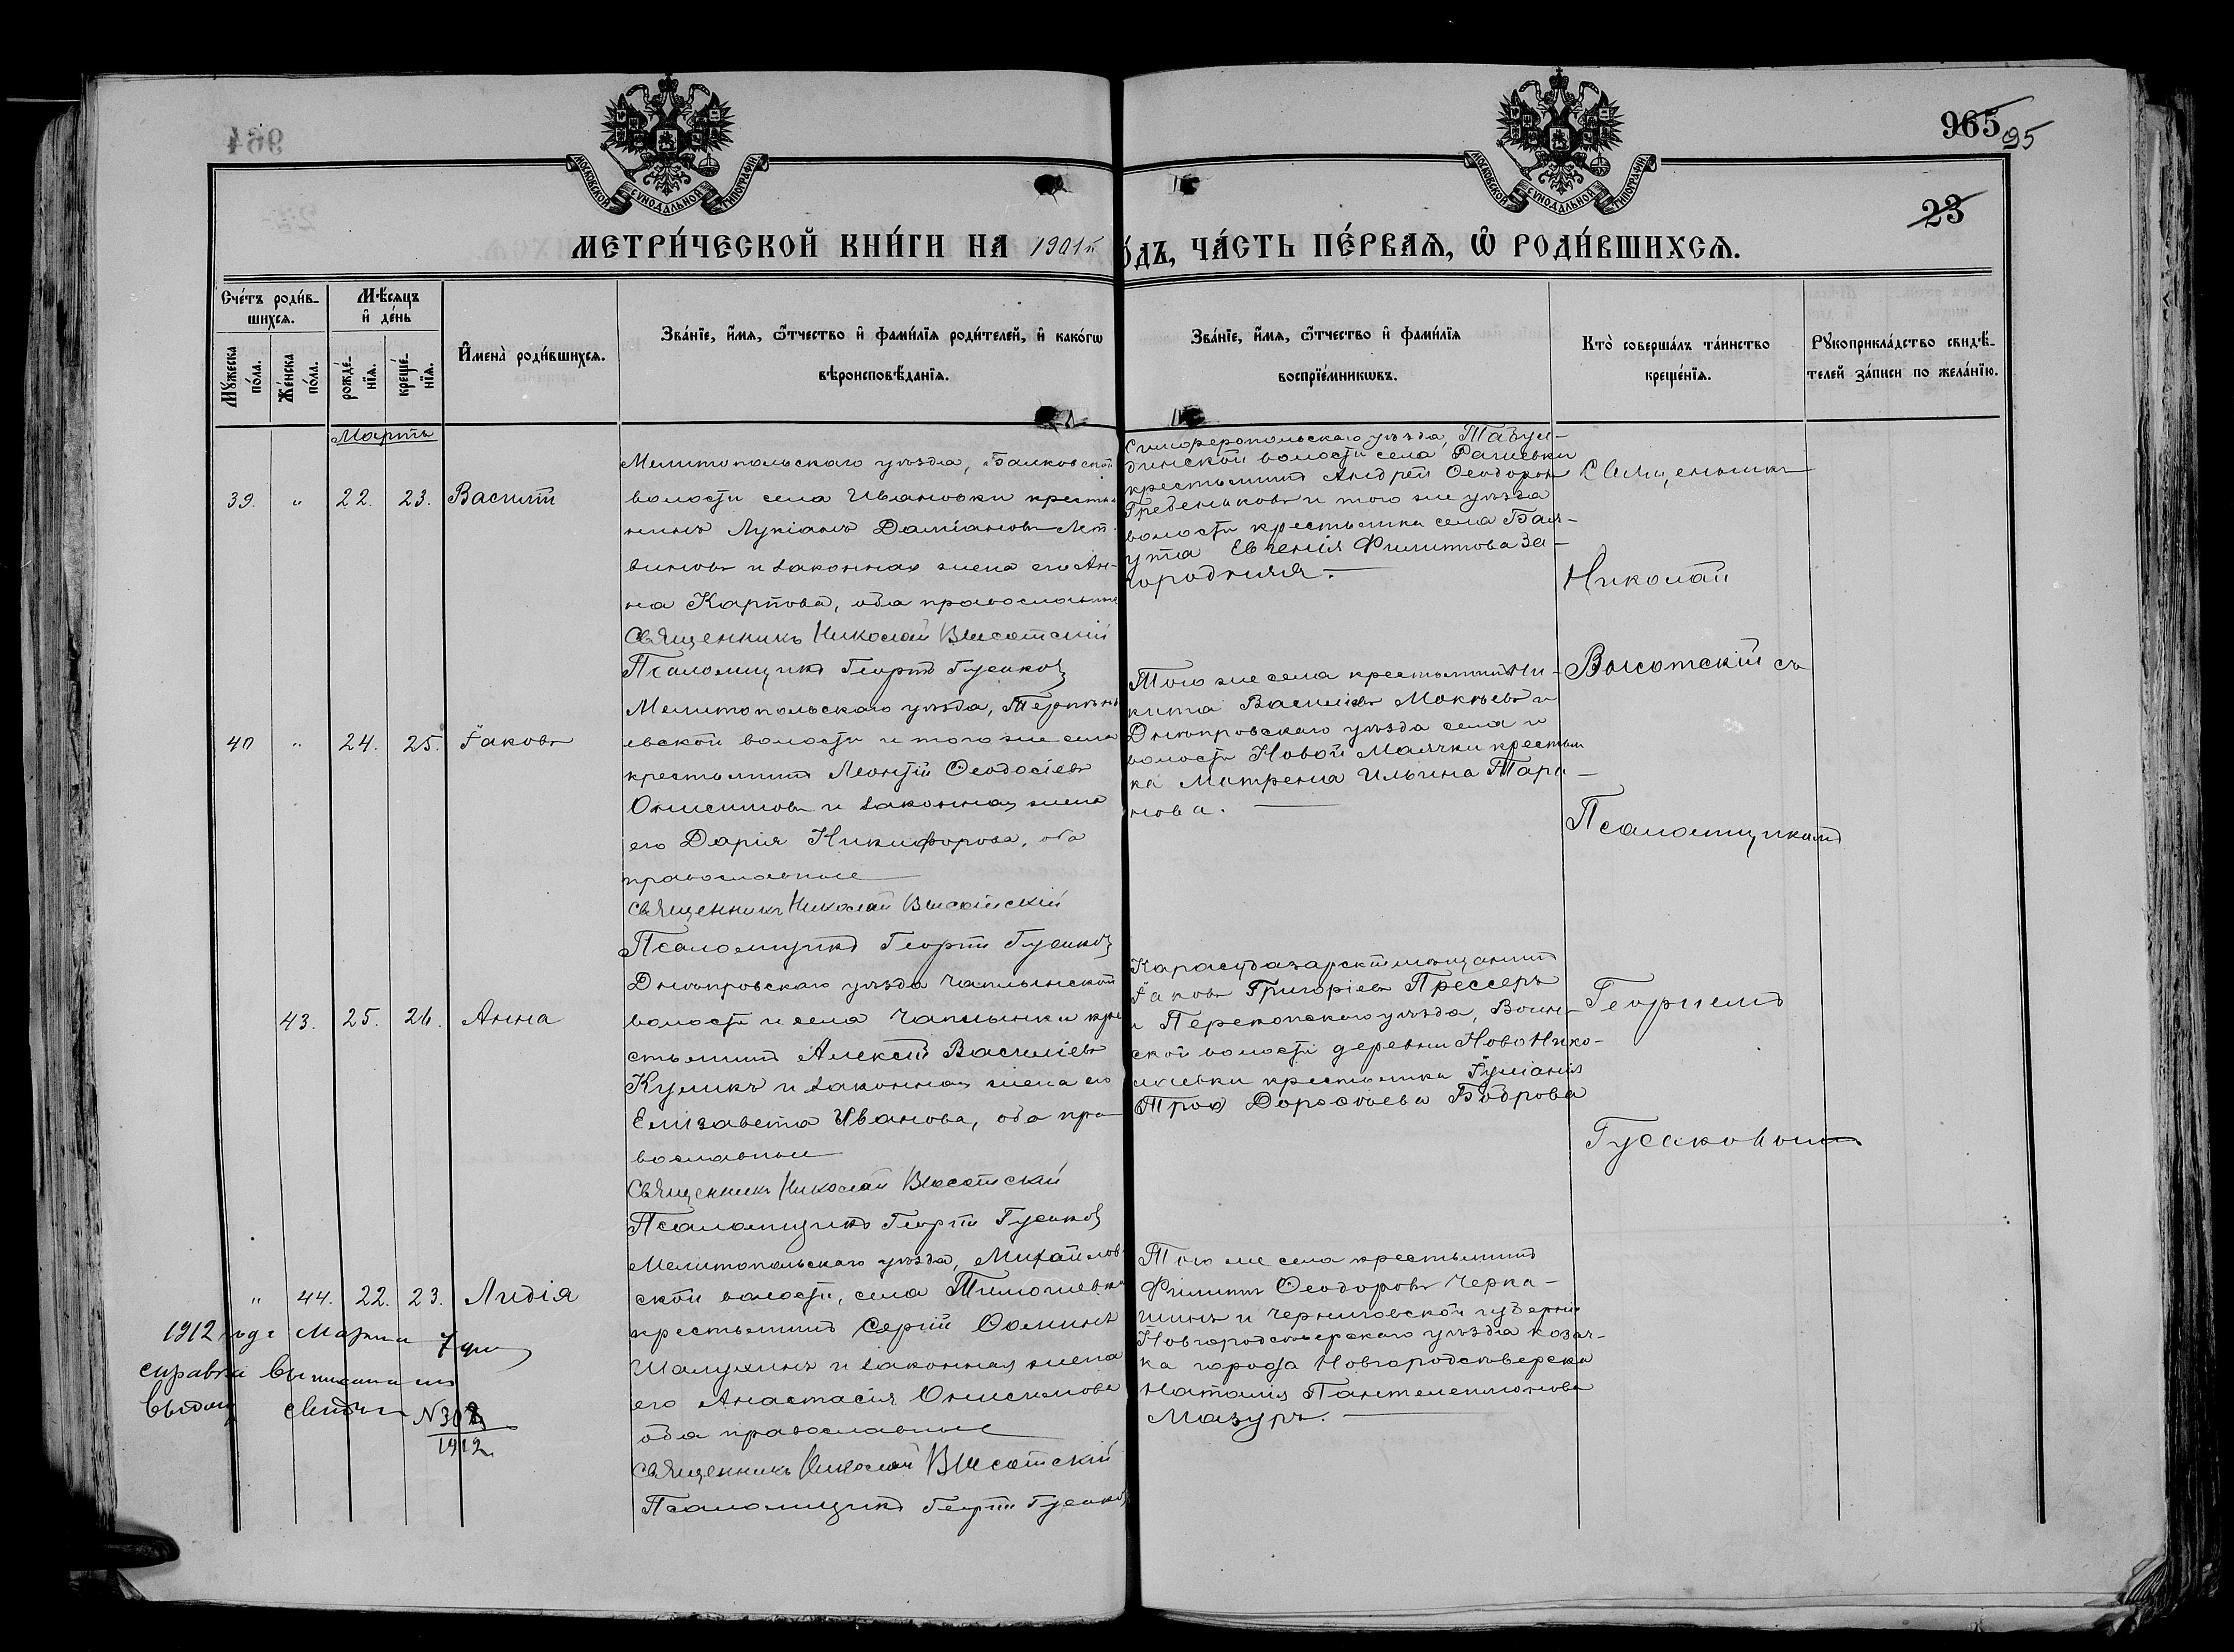 964
965
95
23
МОСКОВСКОЙ СѴНОДАЛЬНОЙ ТИПОГРАФІИ
МОСКОВСКОЙ СѴНОДАЛЬНОЙ ТИПОГРАФІИ
МЕТРИ́ЧЕСКОЙ КНИ́ГИ НА 1901 го́дъ, ЧА́СТЬ ПЕ́РВАѦ, Ѡ҆ РОДИ́ВШИХСѦ.
Сче́тъ роди́вшихсѧ.
Мꙋ́жеска по́ла.
Же́нска по́ла.
Мѣ́сѧцъ и҆ де́нь
рожде́нїѧ.
креще́нїѧ.
И҆мена̀ роди́вшихсѧ.
Зва́нїе, и҆́мѧ, ѻ҆́тчество и҆ фами́лїѧ роди́телей, и҆ како́гѡ
вѣроисповѣ́данїѧ.
Зва́нїе, и҆́мѧ, ѻ҆́тчество и҆ фами́лїѧ
воспрїе́мникѡвъ.
Кто̀ соверша́лъ та́инство
креще́нїѧ.
Рꙋкоприкла́дство свидѣ́-
телей за́писи по жела́нїю.
Мартъ
39. " 22. 23. Василій
Мелитопольскаго уѣзда, Балковской
волости села Ивановки крестья
нинъ Лукіанъ Даміановъ Лит
виновъ и законная жена его Ан-
на Карпова, оба православные
Священникъ Николай Высотскій
Псаломщикъ Георгій Гусаковъ
Симферопольскаго уѣзда, Табул-
динской волости села
крестьянинъ Андрей Ѳеодоровъ
Гребенниковъ и того же уѣзда
волости крестьянка села Бая-
ута Евгенія Филиппова За-
городняя.
40 " 24. 25. Іаковъ
Мелитопольскаго уѣзда, Терпѣнь
евской волости и того же села
крестьянинъ Леонтій Ѳеодосіевъ
Онисимовъ и законная жена
его Дарія Никифорова, оба
православные
Священникъ Николай Высотскій
Псаломщикъ Георгій Гусаковъ
Того же села крестьянинъ Ни-
кита Василіевъ Мокѣевъ и
Днѣпровскаго уѣзда села и
волости Новой Маячки крестьян
ка Матрена Ильина Тара-
нова.
43. 25. 26. Анна
Днѣпровскаго уѣзда Чаплынской
волости и села Чаплынки кре
стьянинъ Алексій Василіевъ
Куликъ и законная жена его
Елизавета Иванова, оба пра-
вославные
Священникъ Николай Высотскій
Псаломщикъ Георгій Гусаковъ
Карасубазарскій мѣщанинъ
Іаковъ Григоріевъ Прессеръ
и Перекопскаго уѣзда, Воин-
ской волости деревни НовоНико-
лаевки крестьянка Іуліанія
Дороѳеева Боброва
" 44. 22. 23. Лидія
Мелитопольскаго уѣзда, Михайлов
ской волости, села Тимошевки
крестьянинъ Сергій Ѳоминъ
Малухинъ и законная жена
его Анастасія Онисимова
оба православные
Священникъ Николай Высотскій
Псаломщикъ Георгій Гусаковъ
Того же села крестьянинъ
Филиппъ Ѳеодоровъ Черка-
шинъ и Черниговской губерніи
Новгородсѣверскаго уѣзда козач-
ка города Новгородсѣверска
Наталія Пантелеимонова
Мазуръ.
Священникъ
Николай
Высотскій съ
Псаломщикомъ
Георгіемъ
Гусаковымъ
1912 года Марта 7 дня
справка
выдана
1912